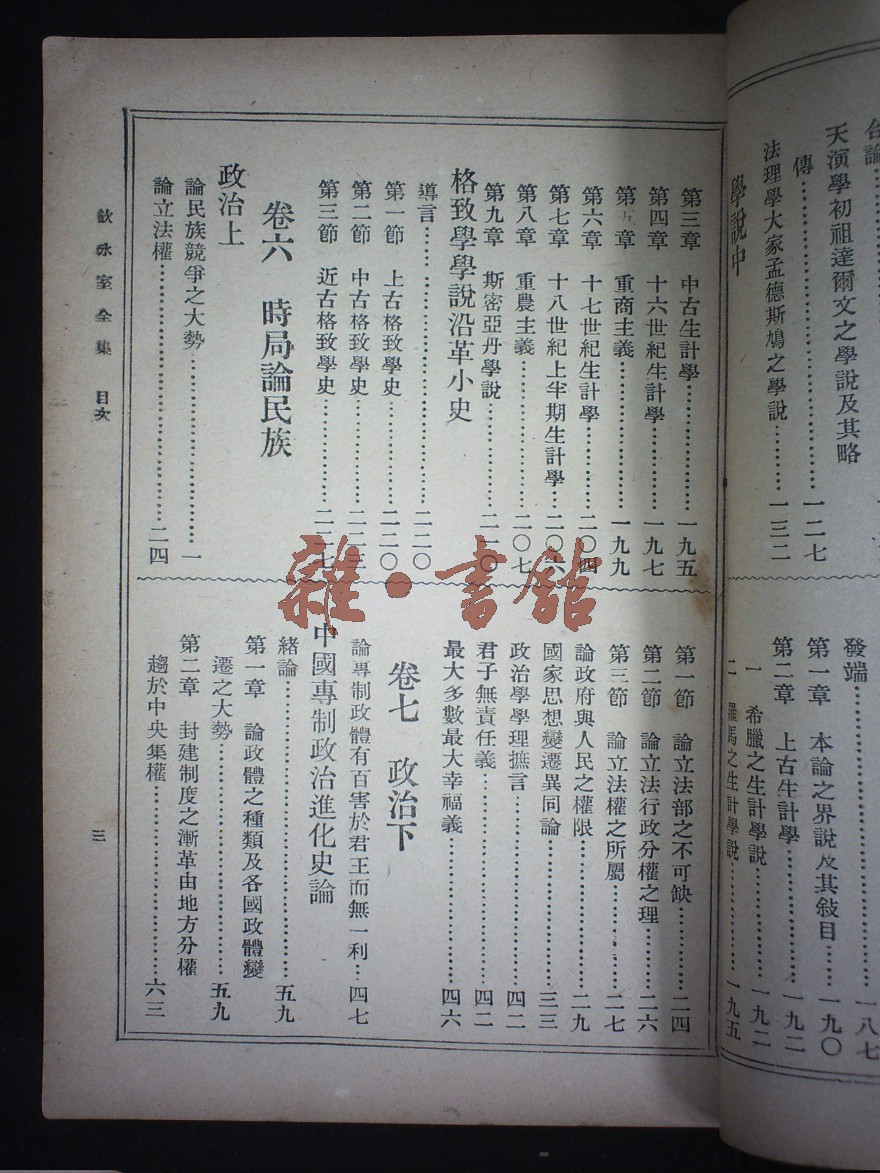 天演學初祖達爾文之學說及其略
傳⋯⋯一二七
法理學大家孟德斯鳩之學說⋯⋯一三二
學說中
發端⋯⋯一八七
第一章 本論之界說及其敍目⋯⋯一九〇
第二章 上古生計學⋯⋯一九二
一 希臘之生計學說⋯⋯一九二
二 羅馬之生計學說⋯⋯一九五
第三章 中古生計學⋯⋯一九五
第四章 十六世紀生計學⋯⋯一九七
第五章 重商主義⋯⋯一九九
第六章 十七世紀生計學⋯⋯二〇四
第七章 十八世紀上半期生計學⋯⋯二〇六
第八章 重農主義⋯⋯二〇七
第九章 斯密亞丹學說⋯⋯二一〇
格致學學說沿革小史
導言⋯⋯二二〇
第一節 上古格致學史⋯⋯二二〇
第二節 中古格致學史⋯⋯二二三
第三節 近古格致學史⋯⋯二二七
卷六 時局論民族
政治上
論民族競爭之大勢⋯⋯一
論立法權⋯⋯二四
第一節 論立法部之不可缺⋯⋯二四
第二節 論立法行政分權之理⋯⋯二六
第三節 論立法權之所屬⋯⋯二七
論政府與人民之權限⋯⋯二九
國家思想變遷異同論⋯⋯三三
政治學學理摭言⋯⋯四二
君子無責任義⋯⋯四二
最大多數最大幸福義⋯⋯四六
卷七 政治下
論專制政體有百害於君王而無一利⋯⋯四七
中國專制政治進化史論
緒論⋯⋯五九
第一章 論政體之種類及各國政體變
遷之大勢⋯⋯五九
第二章 封建制度之漸革由地方分權
趨於中央集權⋯⋯六三
飲冰室全集 目次
三
雜·書館